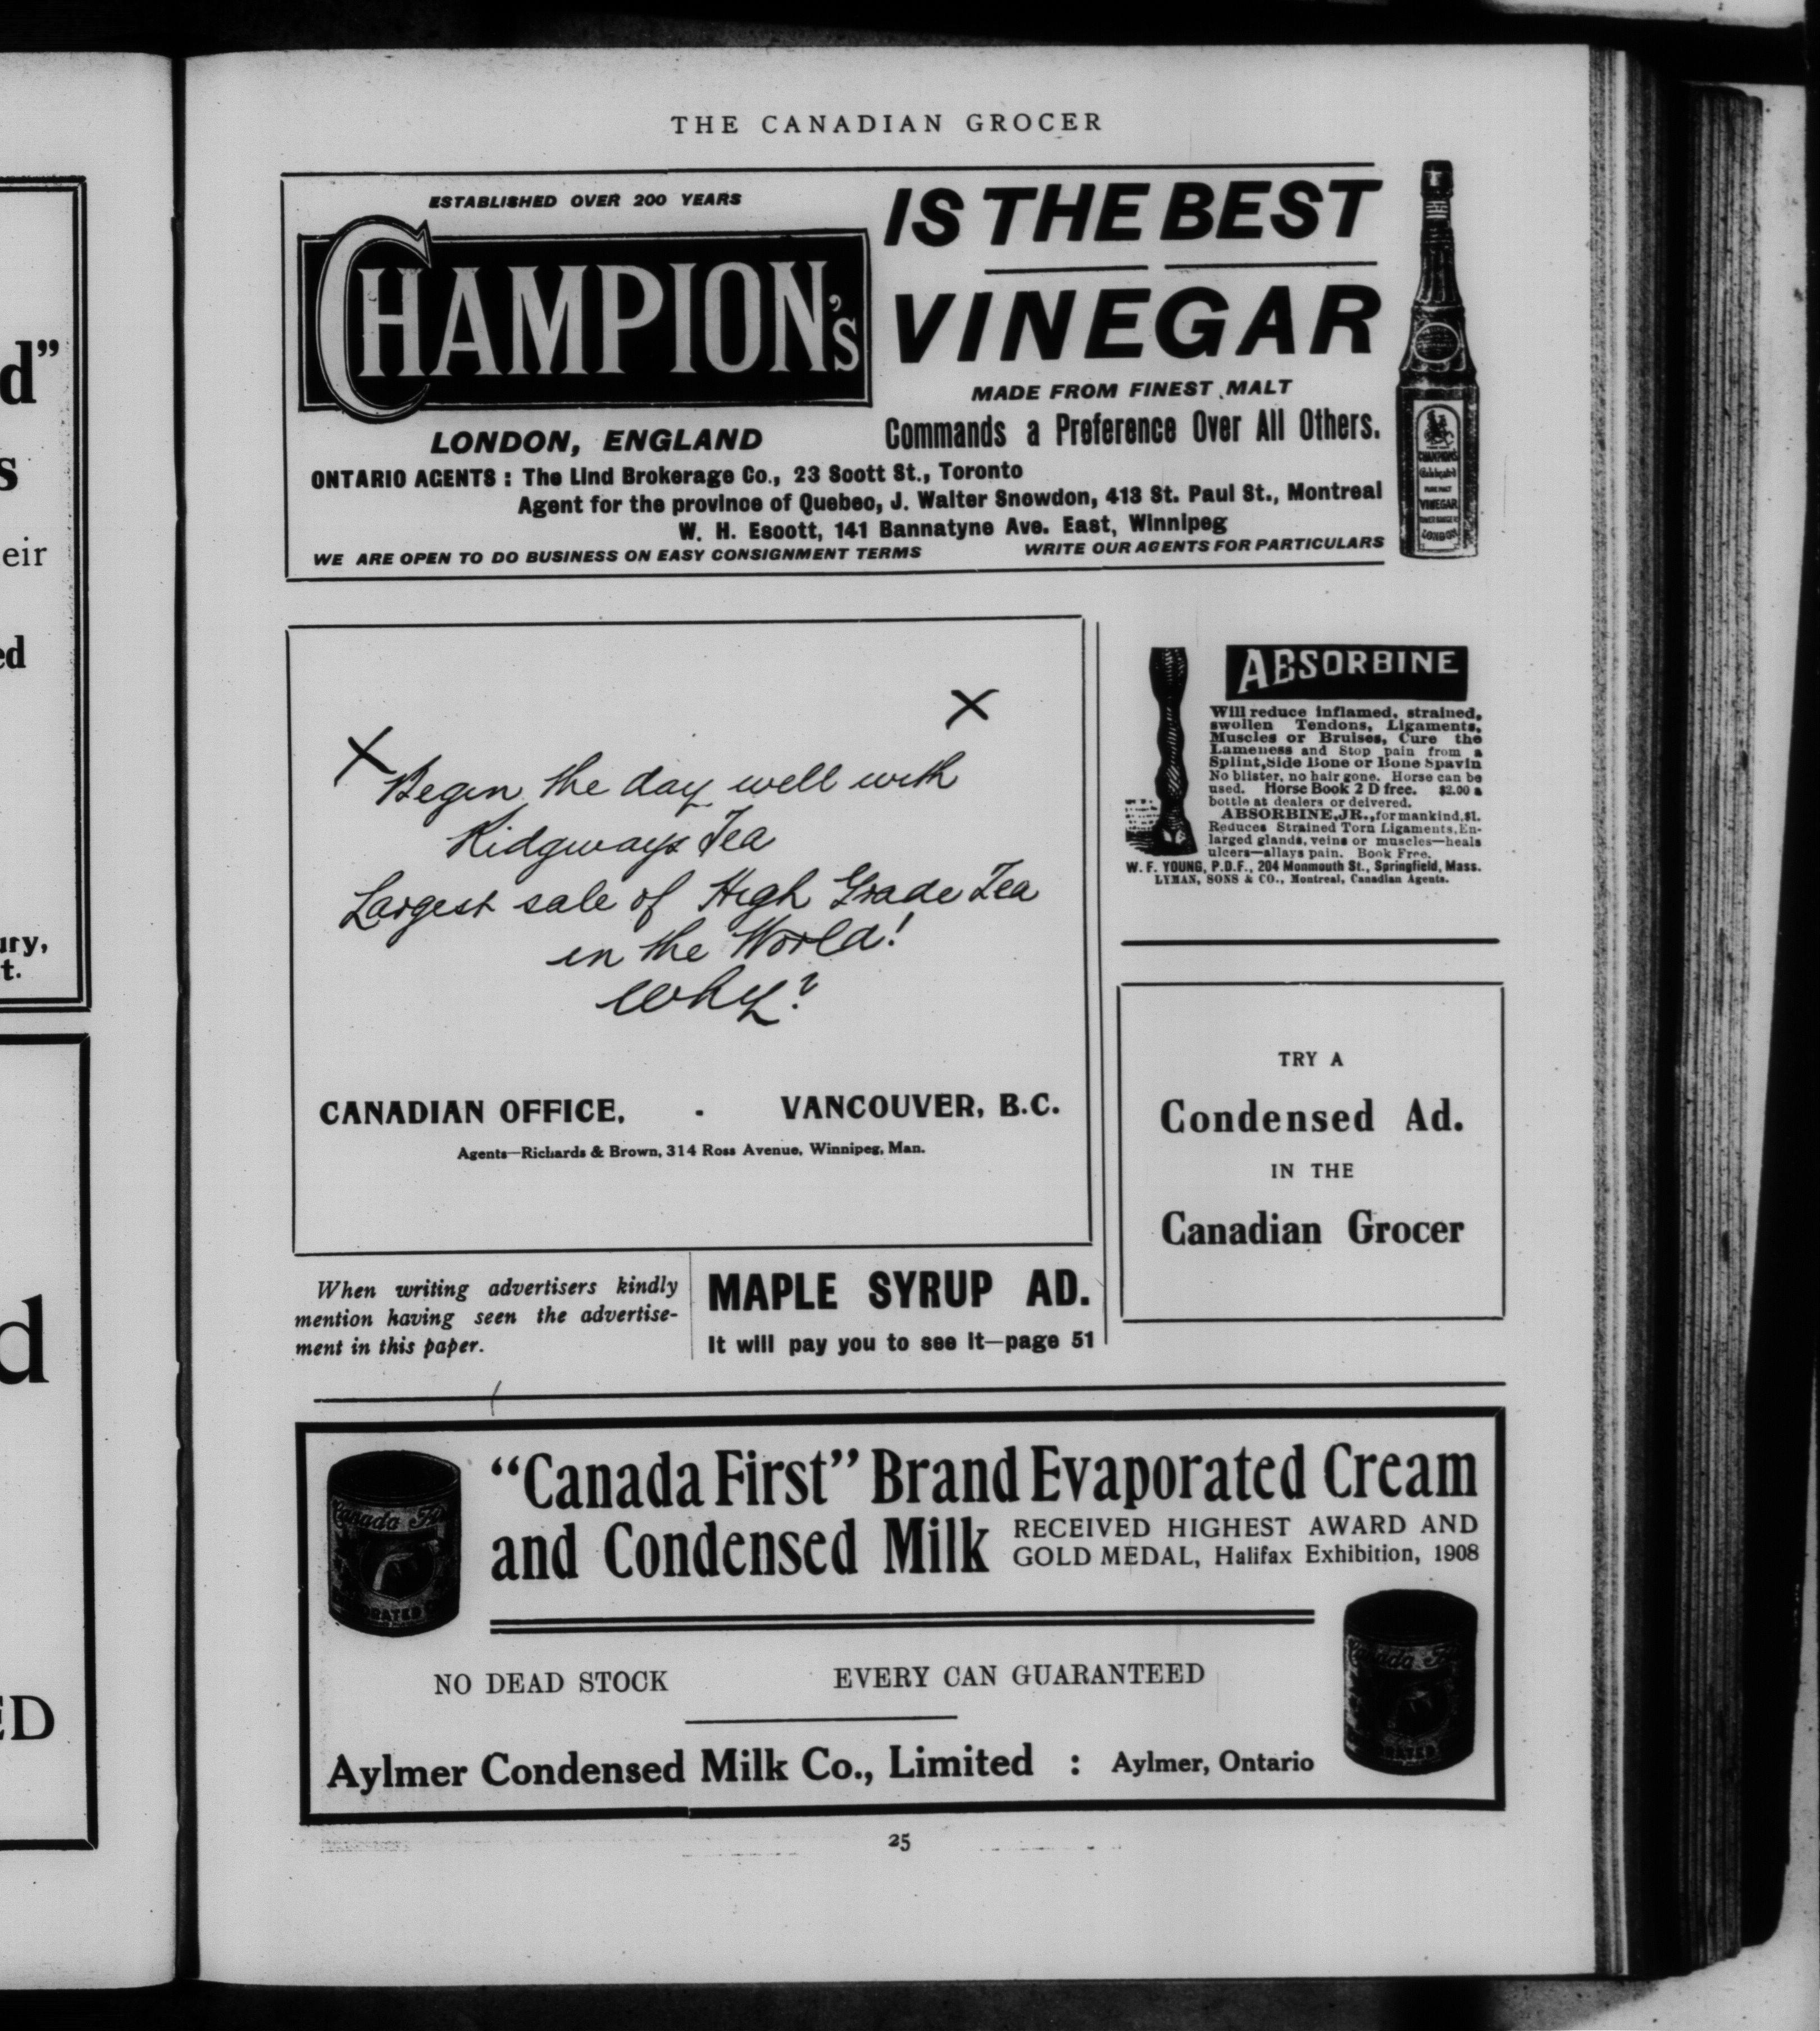 d"
s
eir
ed
ury,
t.
d
ED
THE CANADIAN GROCER
ESTABLISHED OVER 200 YEARS
CHAMPION's
LONDON, ENGLAND
IS THE BEST
VINEGAR
MADE FROM FINEST MALT
Commands a Preference Over All Others.
ONTARIO AGENTS : The Lind Brokerage Co., 23 Scott St., Toronto
Agent for the province of Quebec, J. Walter Snowdon, 413 St. Paul St., Montreal
W. H. Escott, 141 Bannatyne Ave. East, Winnipeg
WE ARE OPEN TO DO BUSINESS ON EASY CONSIGNMENT TERMS WRITE OUR AGENTS FOR PARTICULARS
CHAMPION'S
Celebrated
PURE MALT
VINEGAR
LONDON
X X
Begin the day well with
Ridgways Tea
Largest sale of High Grade Tea
in the World!
Why?
CANADIAN OFFICE, - VANCOUVER, B.C.
Agents—Richards & Brown, 314 Ross Avenue, Winnipeg, Man.
ABSORBINE
Will reduce inflamed, strained,
swollen Tendons, Ligaments,
Muscles or Bruises, Cure the
Lameness and Stop pain from a
Splint, Side Bone or Bone Spavin
No blister, no hair gone. Horse can be
used. Horse Book 2 D free. $2.00 a
bottle at dealers or delvered.
ABSORBINE, JR., for mankind, $1.
Reduces Strained Torn Ligaments, En-
larged glands, veins or muscles—heals
ulcers—allays pain. Book Free.
W. F. YOUNG, P.D.F., 204 Monmouth St., Springfield, Mass.
LYMAN, SONS & CO., Montreal, Canadian Agents.
TRY A
Condensed Ad.
IN THE
Canadian Grocer
When writing advertisers kindly
mention having seen the advertise-
ment in this paper.
MAPLE SYRUP AD.
It will pay you to see it—page 51
"Canada First" Brand Evaporated Cream
and Condensed Milk
RECEIVED HIGHEST AWARD AND
GOLD MEDAL, Halifax Exhibition, 1908
Canada Fir
ORATED
NO DEAD STOCK EVERY CAN GUARANTEED
Canada Fi
RATED
Aylmer Condensed Milk Co., Limited : Aylmer, Ontario
25